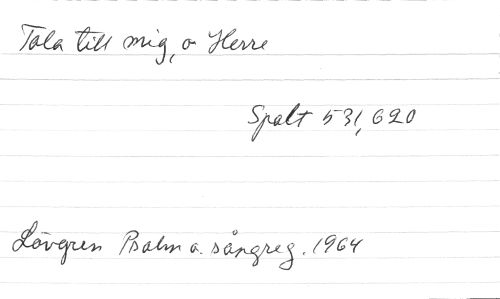 Tala till mig, o Herre
Spalt 531, 620
Lövgren Psalm o. sångreg. 1964